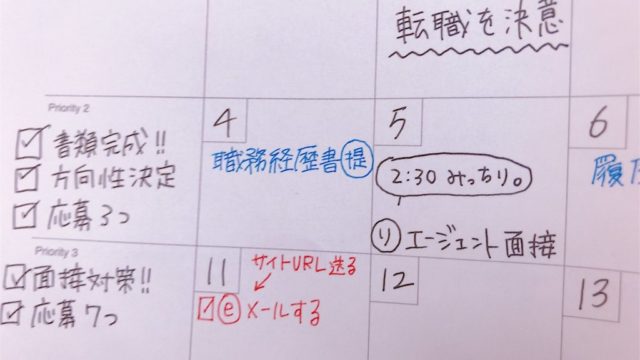 転職を決意
Priority 2
書類完成!!
方向性決定
応募3つ
4
職務経歴書提
5
2:30 みっちり。
りエージェント面接
6
Priority 3
面接対策!!
応募7つ
11
サイトURL送る
e メールする
12
13